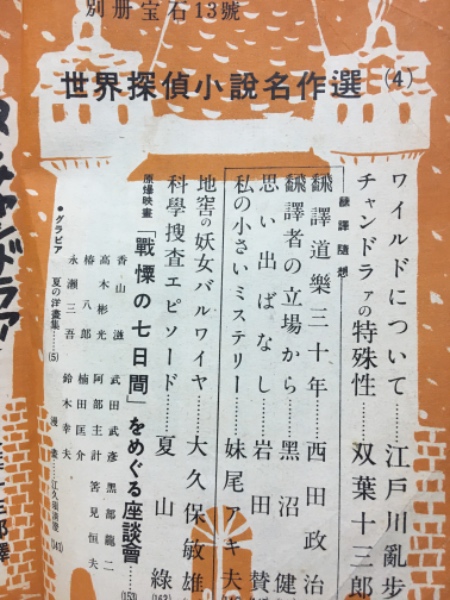 別册宝石13號
世界探偵小說名作選 (4)
ワイルドについて……江戸川亂歩
チャンドラァの特殊性……双葉十三郎
飜譯隨想
飜譯道樂三十年……西田政治
飜譯者の立場から……黒沼健
思い出ばなし……岩田賛
私の小さいミステリー……妹尾アキ夫
地窖の妖女バルワイヤ……大久保敏雄
科學捜査エピソード……夏山綠(162)
原爆映畫「戰慄の七日間」をめぐる座談會……(153)
香山滋 武田武彦 黒部龍二
高木彬光 阿部主計 筈見恒夫
椿八郎 楠田匡介
永瀬三吾 鈴木幸夫
●グラビア 夏の洋畫集……(5)